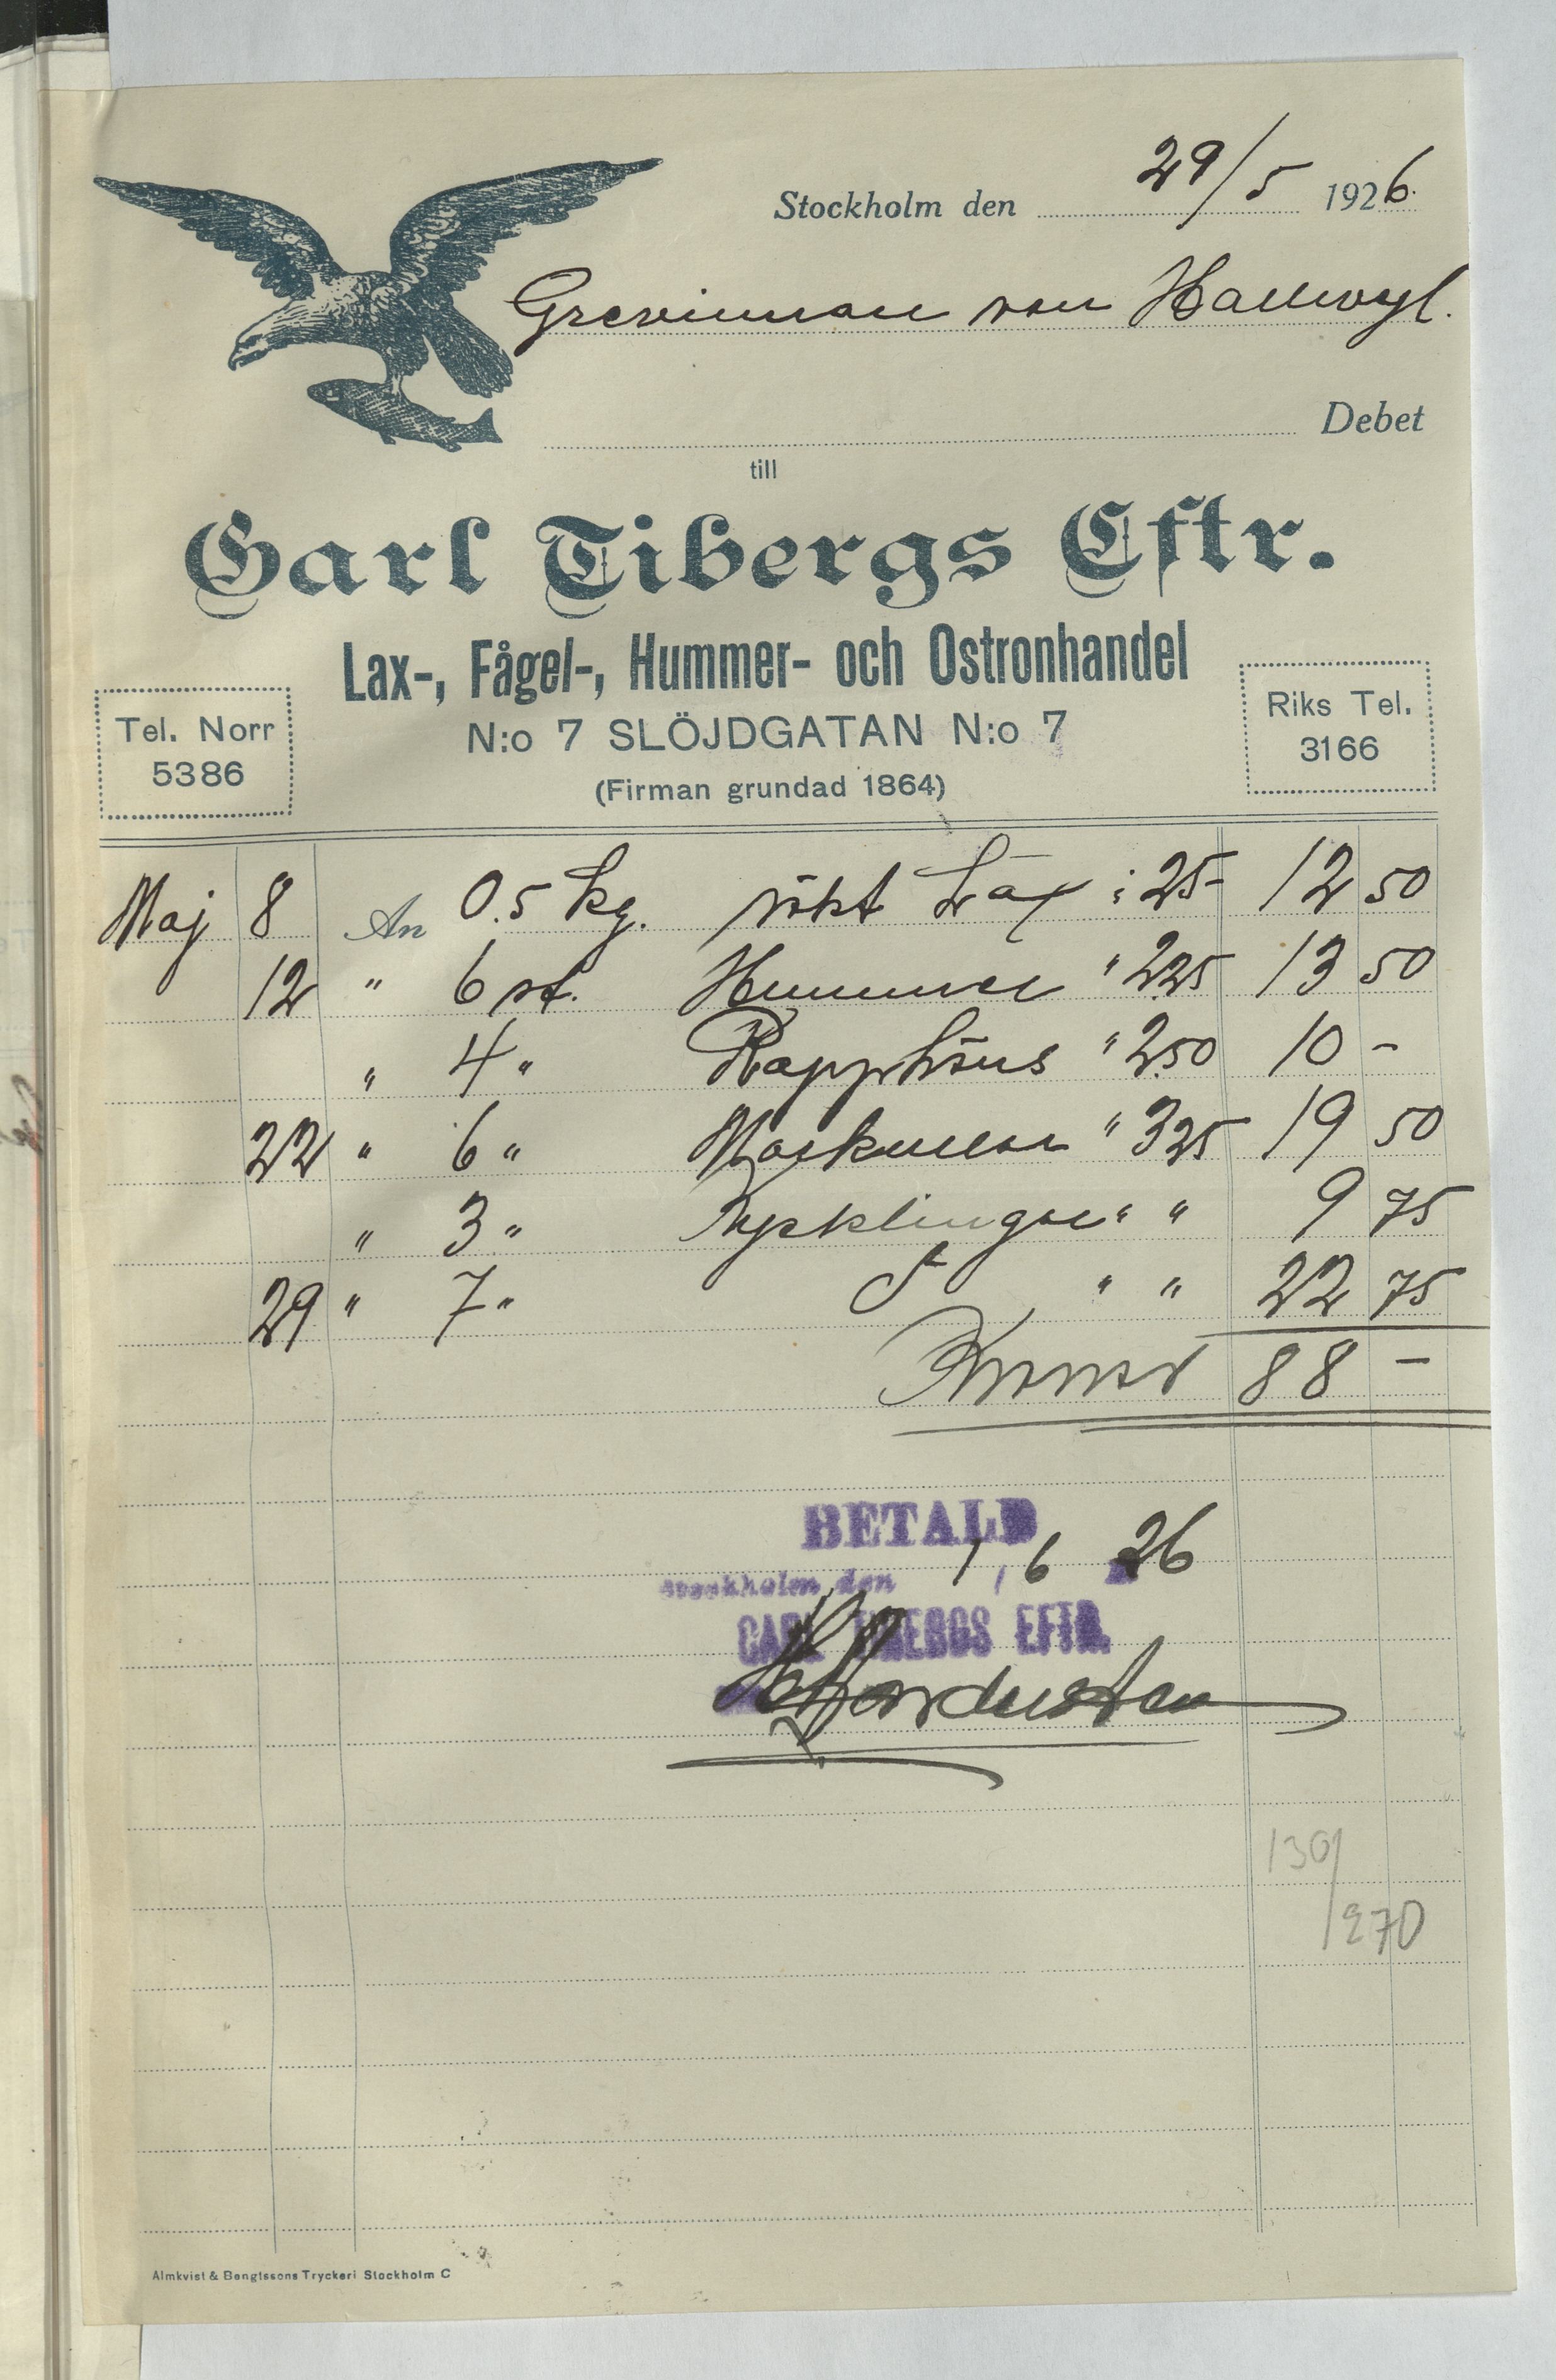 Stockholm den 29/5 1926.
Grevinnan von Hallwyl.
Debet
till
Carl Tibergs Eftr.
Lax-, Fågel-, Hummer- och Ostronhandel
N:o 7 SLÖJDGATAN N:o 7
(Firman grundad 1864)
Tel. Norr
5386
Riks Tel.
3166
Maj 8 An 0.5 kg. rökt Lax : 25- 12 50
12 " 6 st. Hummer " 2.25 13 50
" 4 " Rapphöns " 2.50 10 -
22 " 6 " Morkullor " 3 25 19 50
" 3 " Kycklingar " " 9 75
29 " 7 " " " 22 75
Kronor 88 -
BETALD
Stockholm den 1/6 26
CARL TIBERGS EFTR.
130/
1270
Almkvist & Bengtssons Tryckeri Stockholm C